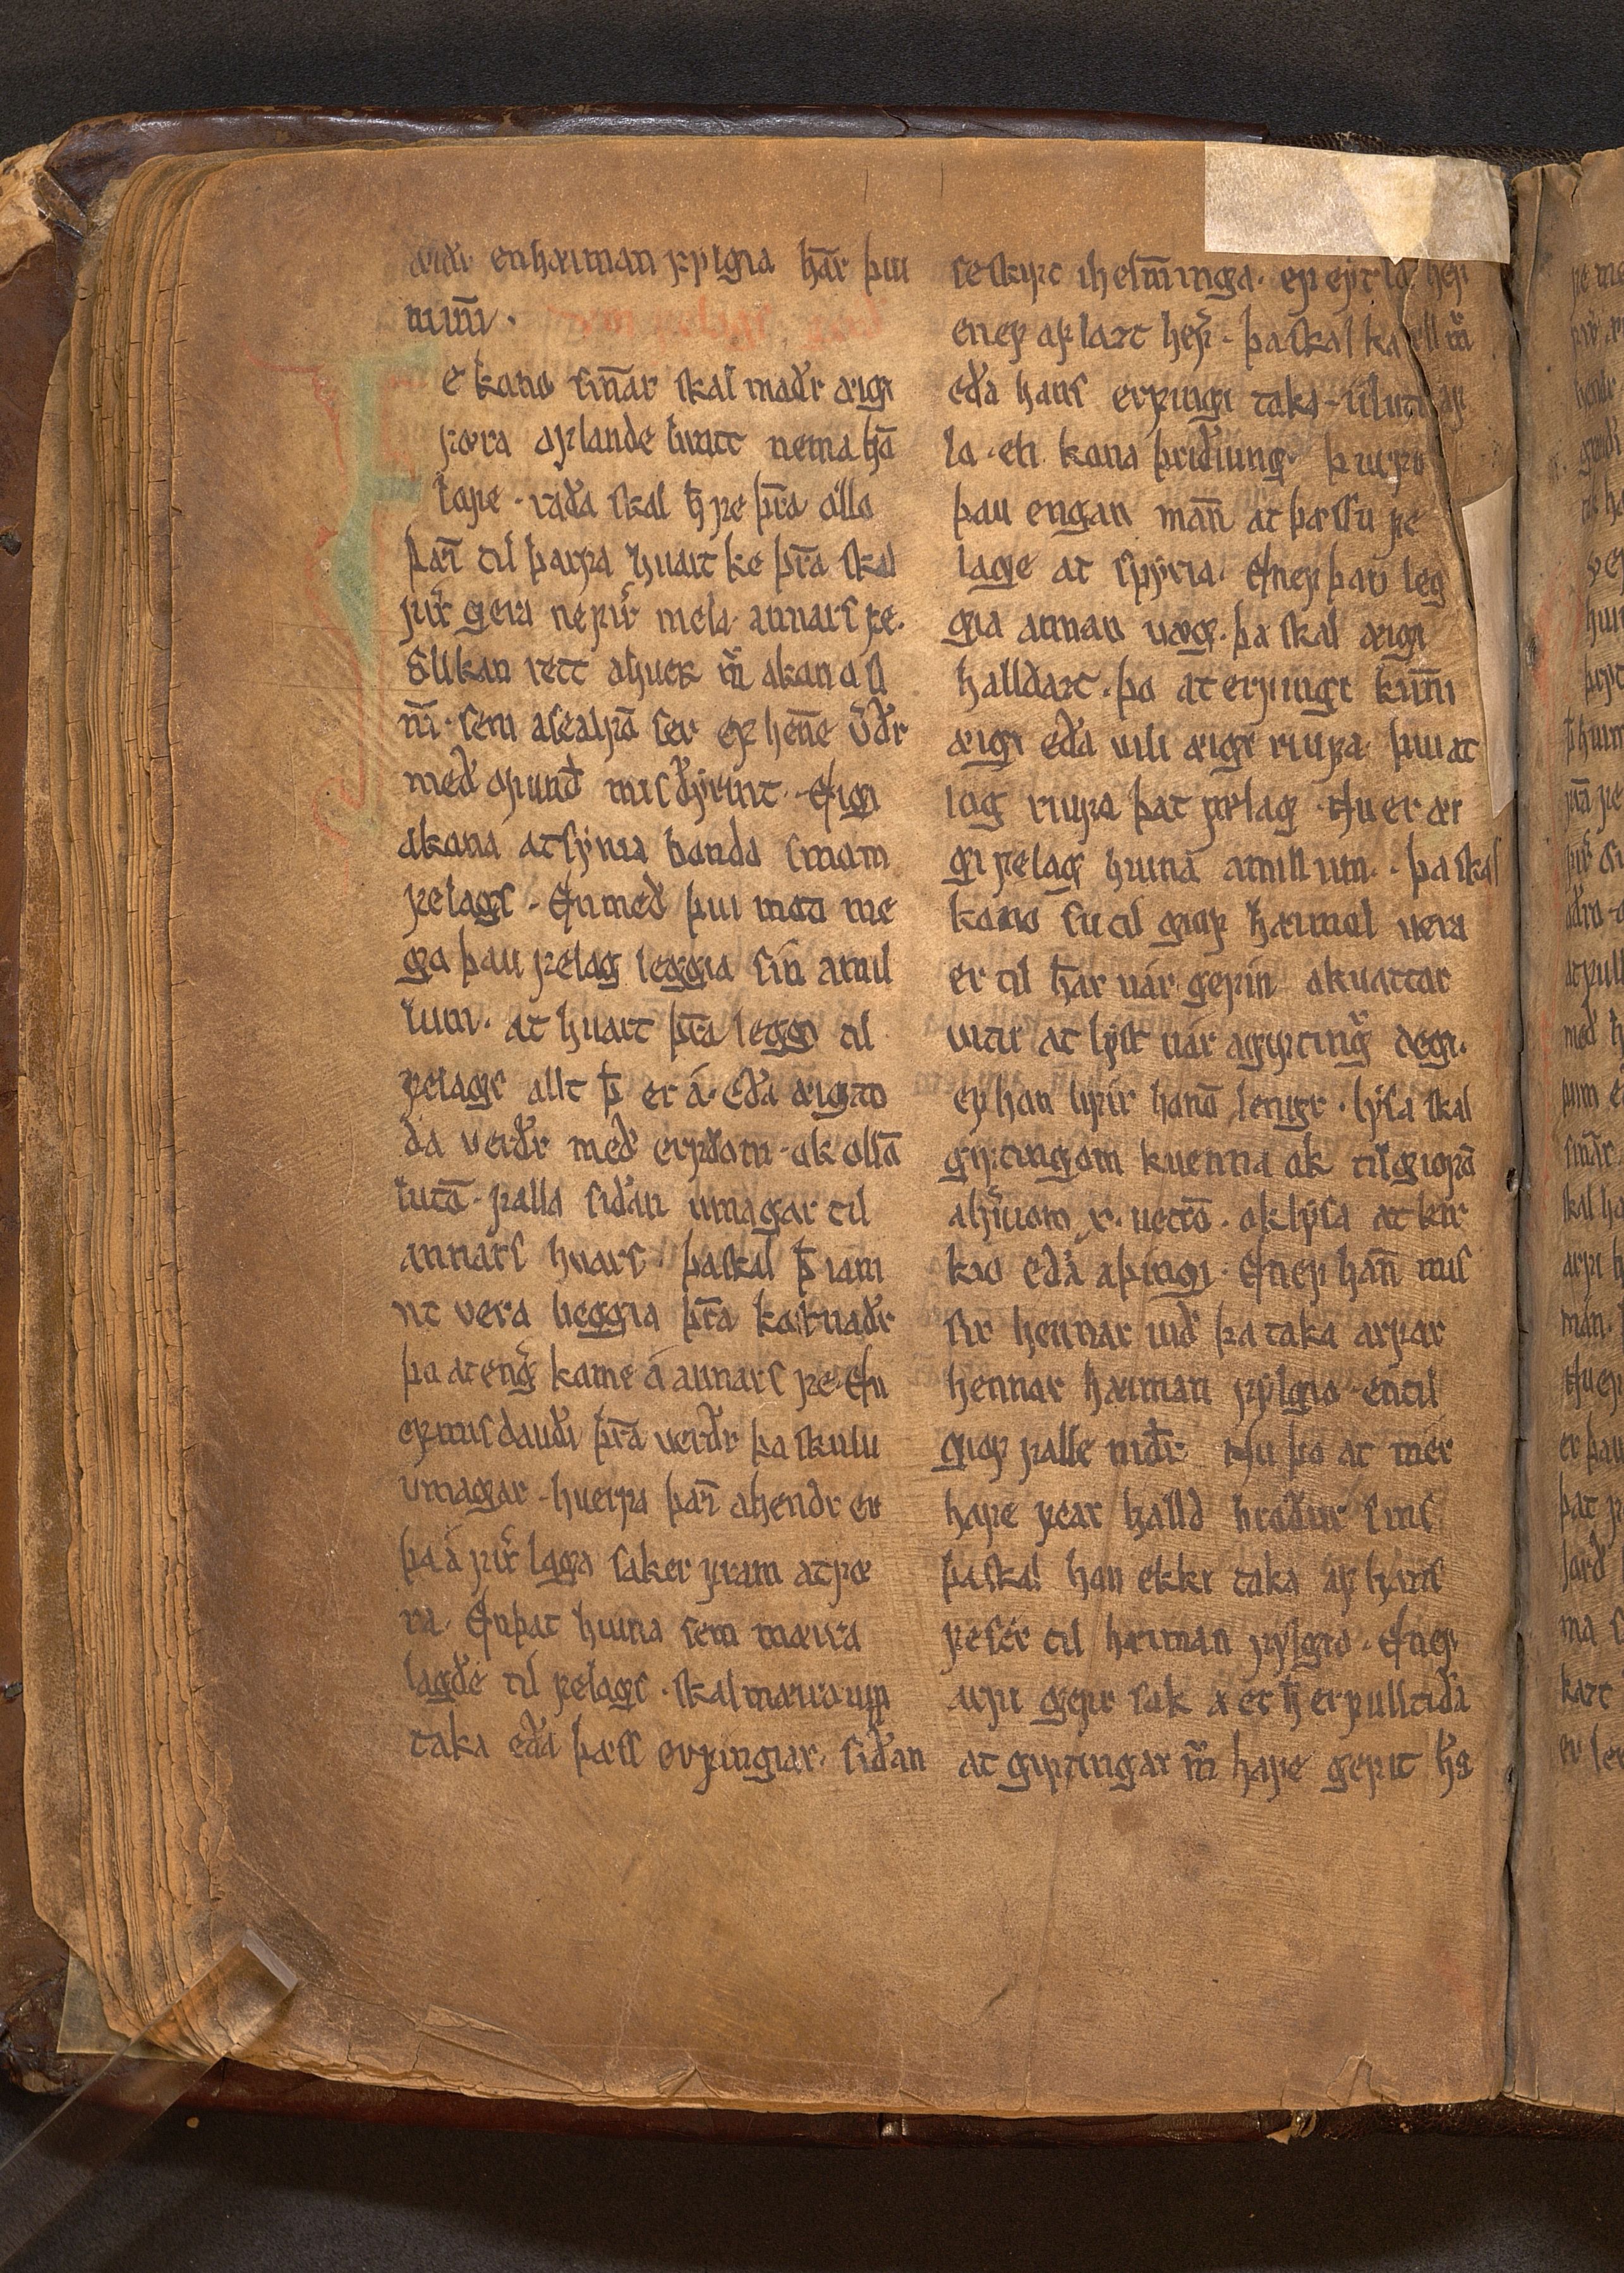 en hæiman fylgia ha̅r þui
minni.
e kono sin̅ar skal madr æigi
føra af lande brutt nema ha̅
lofe. rada skal h̅ fe þr̅a ollo
þæi̅ til þarfa huart ke þr̅a skal
firir gera ne firir mela annars fe.
Slikan rett a huer m̅ a kono si
n̅i. sem a sealfu̅ ser ef hen̅e v̅dr
med ofund misþyrmt. Eigi
a kona at synia bonda sinom
felags. En med þui moti me
ga þau felag leggia sin̅ amil
lum. at huart þr̅a leggo til
felags allt þ̅ er á. eda æigno
da verdr med erfdom. ok ollo̅
luto̅. falla sidan vmagar til
annars huars. þa skal þ̅ iam
nt vera beggia þr̅a kostnadr
þo at engi kome á annars fe. En
ef misdaudi þr̅a verdr þa skulu
vmagar huerfa þæi̅ a hendr er
þa á firir laga saker fram at fø
ra. En þat hiuna sem mæira
lagde til felags. skal mæira upp
taka eda þæss ervingiar. sidan
se skipt i helm̅inga. ef eyr la hefir
en ef aflazt hefir. þa skal ka ll m̅
eda hans ervingi taka ij luti af
la. en kona þridiung. þurfo
þau engan man̅ at þæssu fe
lage at spyria. En ef þau leg
gia annan uæg. þa skal æigi
halldazt. þo at ervingi kun̅i
æigi eda vili æigi riufa þui at
log riufa þat felag. Nu er æi
gi felag hiuna amillum. þa skal
kono su til giof hæimol vera
er til ha̅r uar gefin a kuattar
vitu at lyst uar a giftingar degi.
ef han lifir hano̅ lengr. lysa skal
giftingom kuenna ok tilgiofu̅
a huerom x. uetro̅. ok lysa at kir
kio eda a þingi. En ef han̅ mis
sir hennar uid þa taka arfar
hennar hæiman fylgio en til
giof falle nidr. Nu þo at mer
hafe fear halld brodur sins
þa skal han ekki taka af hans
fe ser til hæiman fylgio. En ef
arfi gefir sok a et h̅ er fulltida
at giftingar m̅ hafe gefit hs